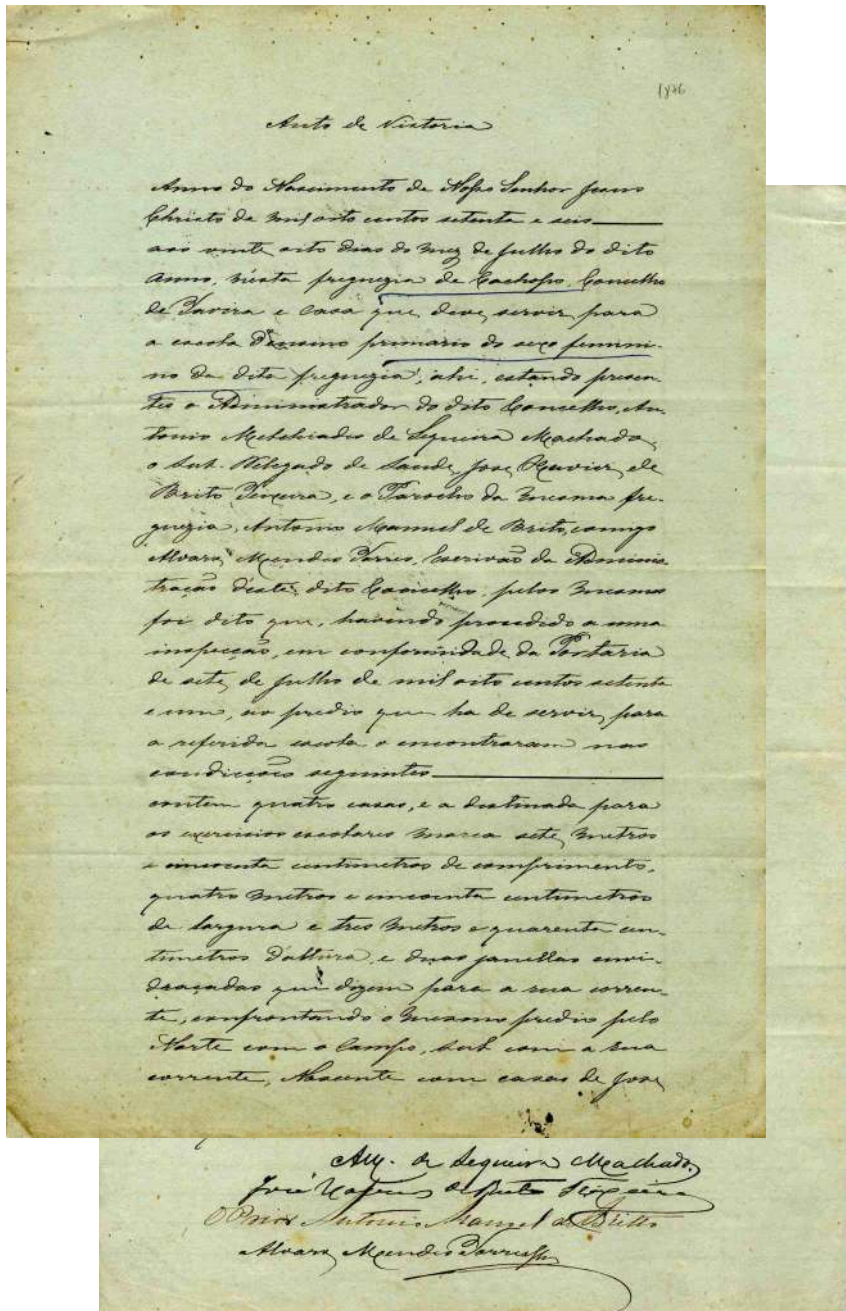 1876
Auto de Vistoria
Anno do Nascimento de Nosso Senhor Jesus
Christo de mil oito centos setenta e seis
aos vinte oito dias do mez de Julho do dito
anno, n'esta freguezia de Cachopo, Concelho
de Tavira e casa que deve servir para
a escola d'ensino primario do sexo femini-
no da dita freguezia, ahi, estando presen-
tes o Administrador do dito Concelho, An-
tonio Melchiades de Sequeira Machado,
o Sub. Delegado de Saude, José Xavier de
Brito Teixeira, e o Parocho da mesma fre-
guezia, Antonio Manuel de Brito, comigo
Alvaro Mendes Torres, Escrivão da Adminis-
tração d'este dito Concelho, pelos mesmos
foi dito que, havendo procedido a uma
inspecção, em conformidade da Portaria
de sete de Julho de mil oito centos setenta
e um, ao predio que ha de servir para
a referida escola o encontraram nas
condicções seguintes
contem quatro casas, e a destinada para
os exercicios escolares marca sete metros
e cincoenta centimetros de comprimento,
quatro metros e cincoenta centimetros
de largura e tres metros e quarenta cen-
timetros d'altura, e duas janellas envi-
draçadas que dizem para a rua corren-
te, confrontando o mesmo predio pelo
Norte com o Campo, Sul com a rua
corrente, Nascente com casas de José
AM. de Sequeira Machado
José Xavier de Brito Teixeira
O Prior Antonio Manuel de Britto
Alvaro Mendes Torres